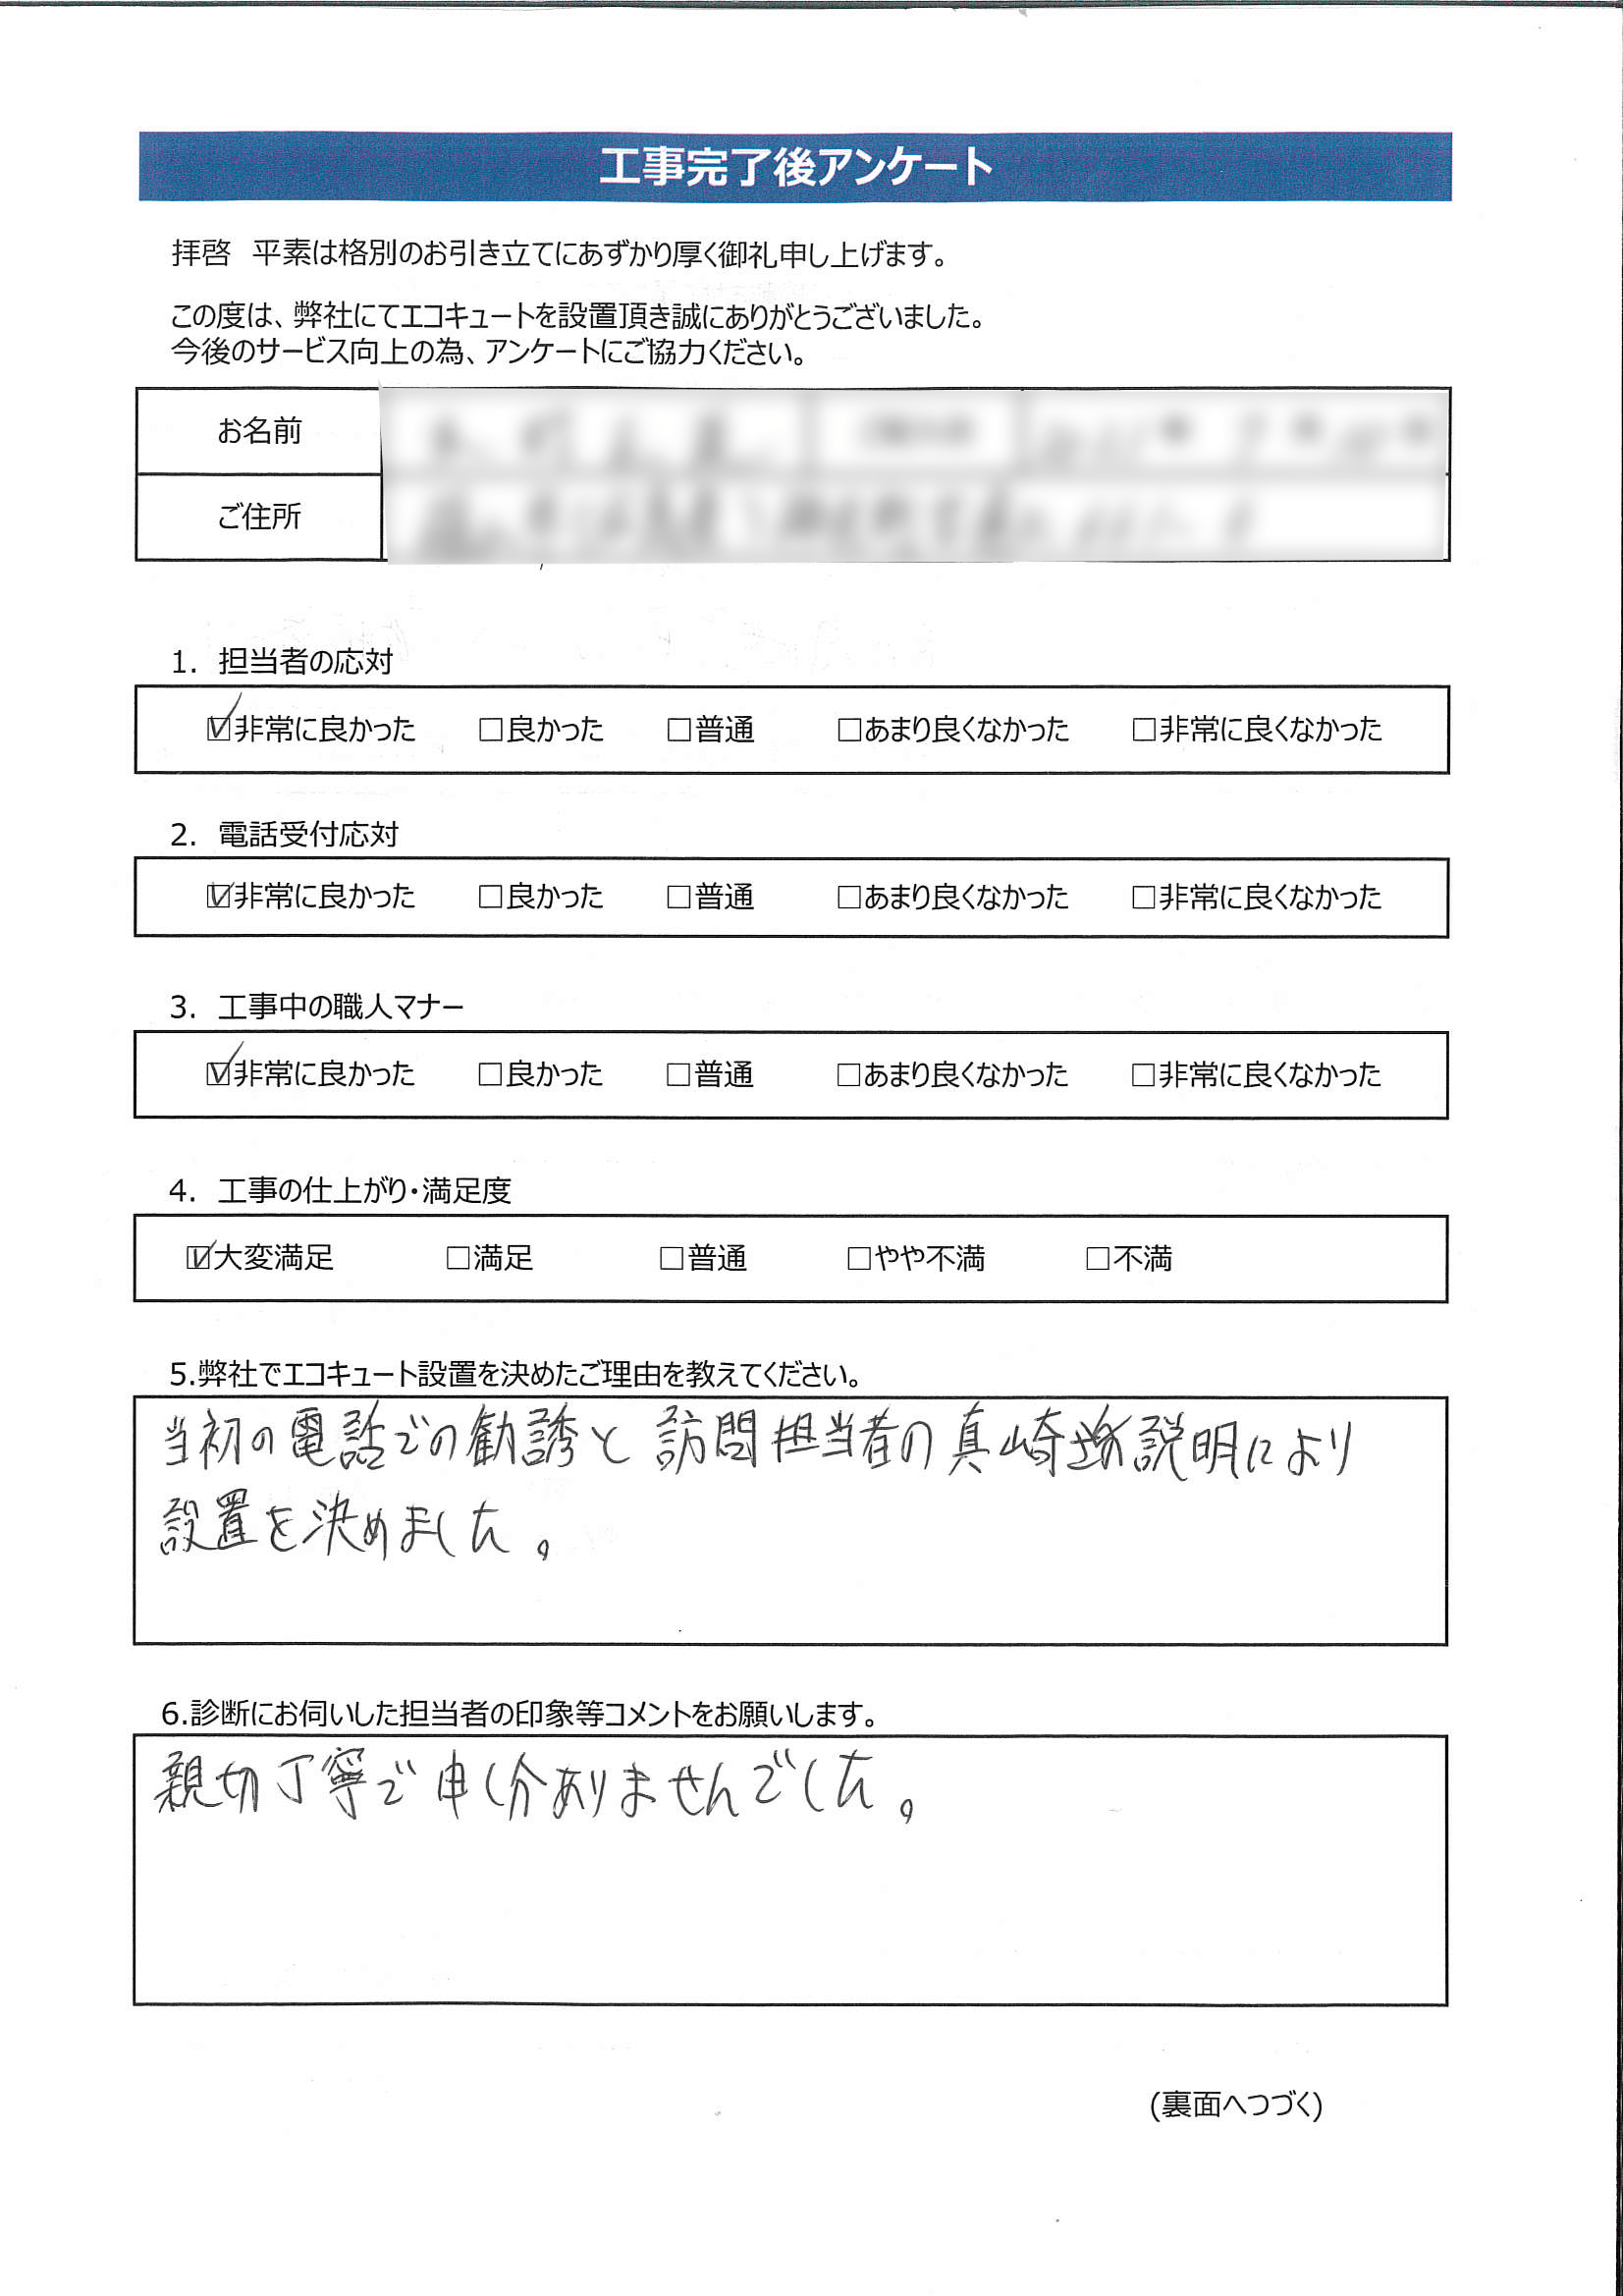 工事完了後アンケート
拝啓　平素は格別のお引き立てにあずかり厚く御礼申し上げます。
この度は、弊社にてエコキュートを設置頂き誠にありがとうございました。
今後のサービス向上の為、アンケートにご協力ください。
お名前
ご住所
1.　担当者の応対
☑非常に良かった　□良かった　□普通　□あまり良くなかった　□非常に良くなかった
2.　電話受付応対
☑非常に良かった　□良かった　□普通　□あまり良くなかった　□非常に良くなかった
3.　工事中の職人マナー
☑非常に良かった　□良かった　□普通　□あまり良くなかった　□非常に良くなかった
4.　工事の仕上がり・満足度
☑大変満足　□満足　□普通　□やや不満　□不満
5.弊社でエコキュート設置を決めたご理由を教えてください。
当初の電話での勧誘と訪問担当者の真崎説明により
設置を決めました。
6.診断にお伺いした担当者の印象等コメントをお願いします。
親切丁寧で申し分ありませんでした。
(裏面へつづく)